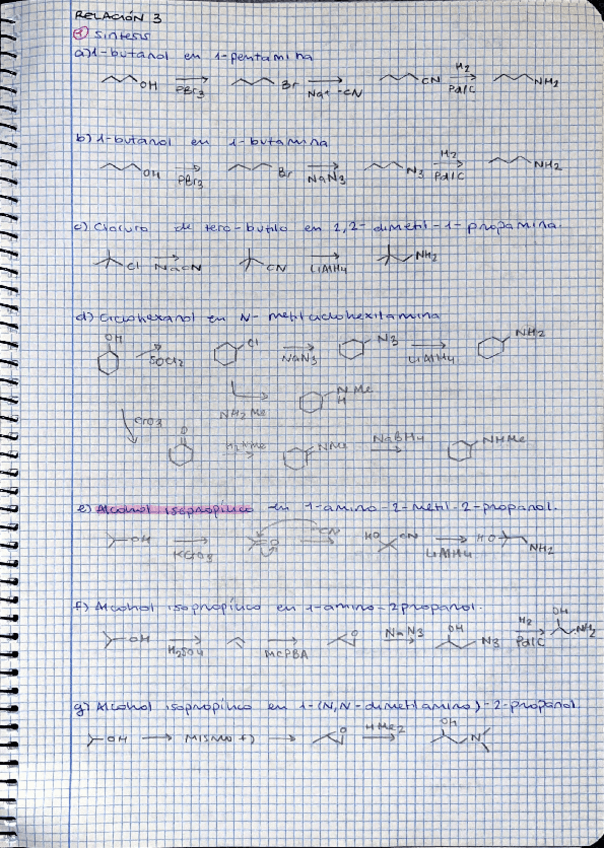 RELACIÓN 3
1 Síntesis
a) 1-butanol en 1-pentamina
OH PBr3 Br Na+ -CN CN H2 Pd/C NH2
b) 1-butanol en 1-butamina
OH PBr3 Br NaN3 N3 H2 Pd/C NH2
c) Cloruro de terc-butilo en 2,2-dimetil-1-propamina.
Cl NaCN CN LiAlH4 NH2
d) Ciclohexanol en N-metilciclohexilamina
OH SOCl2 Cl NaN3 N3 LiAlH4 NH2
NH2Me N Me
H
CrO3 O NMe NaBH4 NHMe
e) Alcohol isopropílico en 1-amino-2-metil-2-propanol.
OH O CN HO CN LiAlH4 HO NH2
f) Alcohol isopropílico en 1-amino-2propanol.
OH H2SO4 MCPBA O NaN3 OH N3 H2 Pd/C OH NH2
g) Alcohol isopropílico en 1-(N,N-dimetilamino)-2-propanol
OH MISMO f) O HMe2 OH N